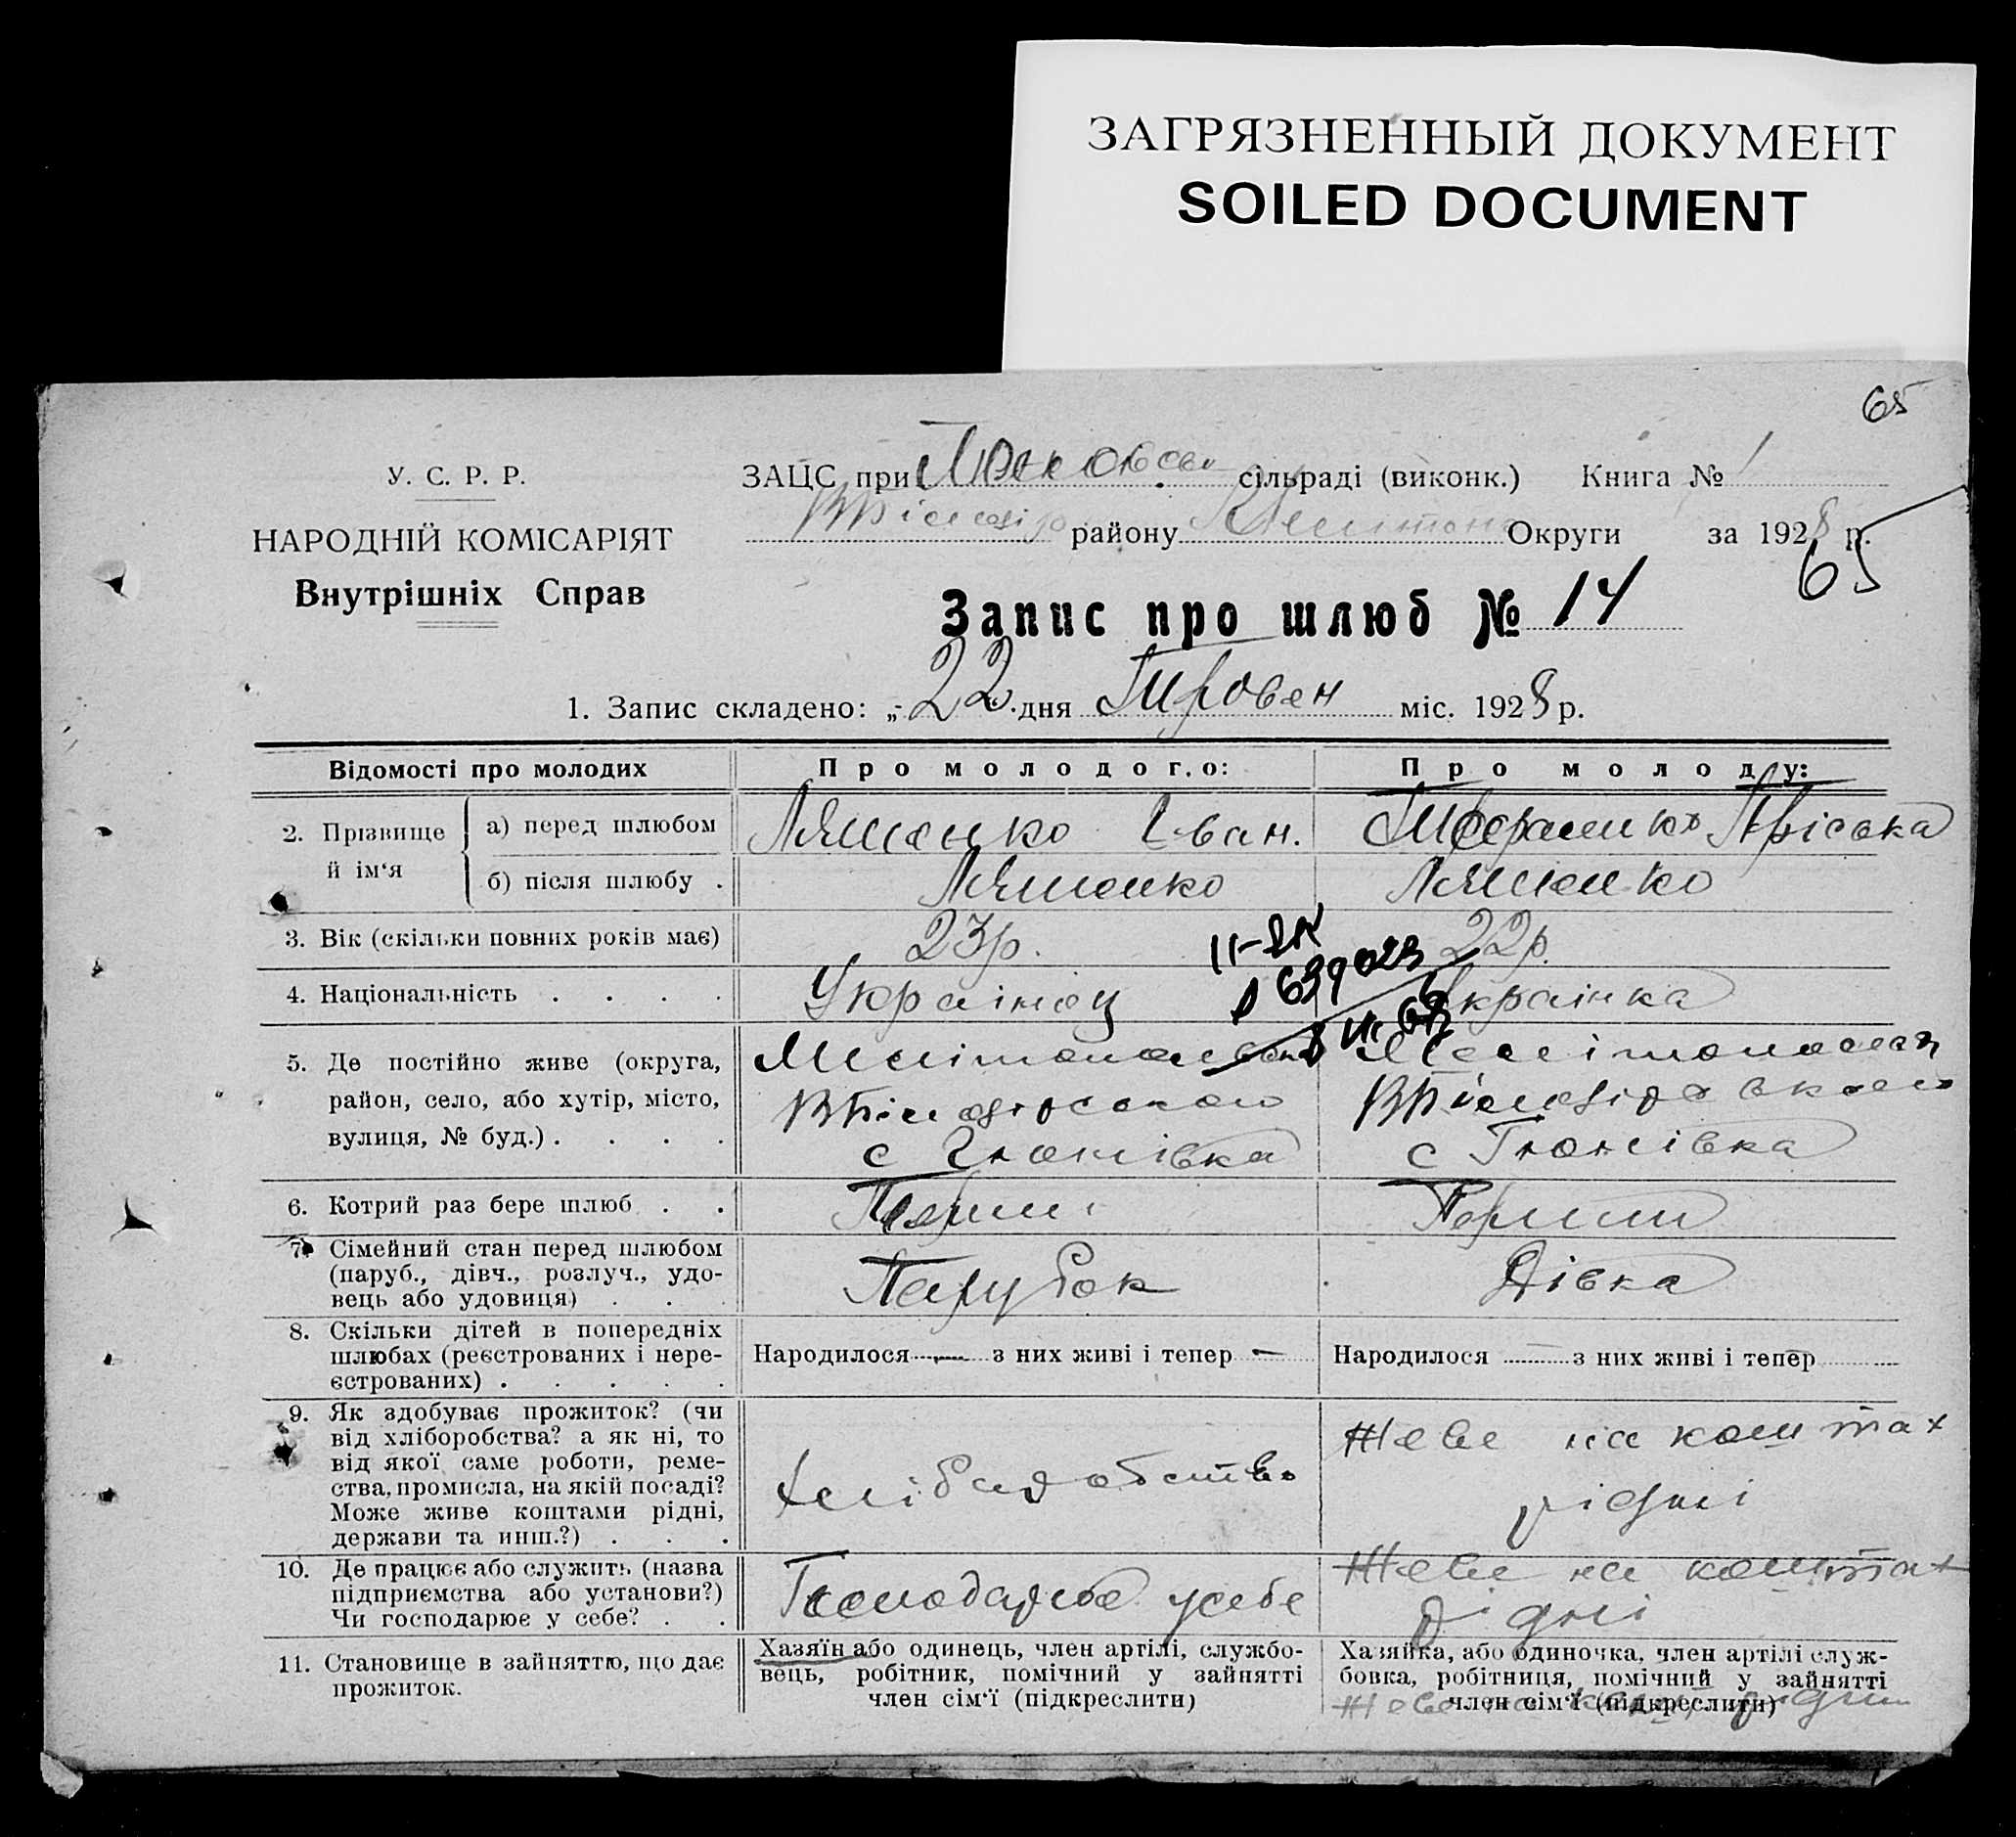 ЗАГРЯЗНЕННЫЙ ДОКУМЕНТ
SOILED DOCUMENT
65
У. С. Р. Р.
НАРОДНІЙ КОМІСАРІЯТ
Внутрішніх Справ
ЗАЦС при сільраді (виконк.) Книга № 1
району Округи за 1928 р.
65
Запис про шлюб № 14
1. Запис складено: „22 дня міс. 1928 р.
Відомості про молодих
Про молодого:
Про молоду:
2. Прізвище й ім‘я
а) перед шлюбом
Ляшенко Іван.
Пріська
б) після шлюбу .
Ляшенко
Ляшенко
3. Вік (скільки повних років має)
23р.
22р.
4. Національність . . . .
Українец
Українка
639023
5. Де постійно живе (округа,
район, село, або хутір, місто,
вулиця, № буд.) . . . .
с
с Тюнівка
6. Котрий раз бере шлюб . .
Перши
Перши
7. Сімейний стан перед шлюбом
(паруб., дівч., розлуч., удо-
вець або удовиця) . .
Парубок
Дівка
8. Скільки дітей в попередніх
шлюбах (реєстрованих і нере-
єстрованих) . . . . .
Народилося — з них живі і тепер —
Народилося — з них живі і тепер —
9. Як здобуває прожиток? (чи
від хліборобства? а як ні, то
від якої саме роботи, реме-
ства, промисла, на якій посаді?
Може живе коштами рідні,
держави та инш.?) . . .
Живе на коштах
рідні
10. Де працює або служить (назва
підприємства або установи?)
Чи господарює у себе? . .
усебе
Живе на коштах
рідні
11. Становище в зайняттю, що дає
прожиток.
Хазяїн або одинець, член артілі, службо-
вець, робітник, помічний у зайнятті
член сім‘ї (підкреслити)
Хазяйка, або одиночка, член артілі служ-
бовка, робітниця, помічний у зайнятті
член сім‘ї (підкреслити)